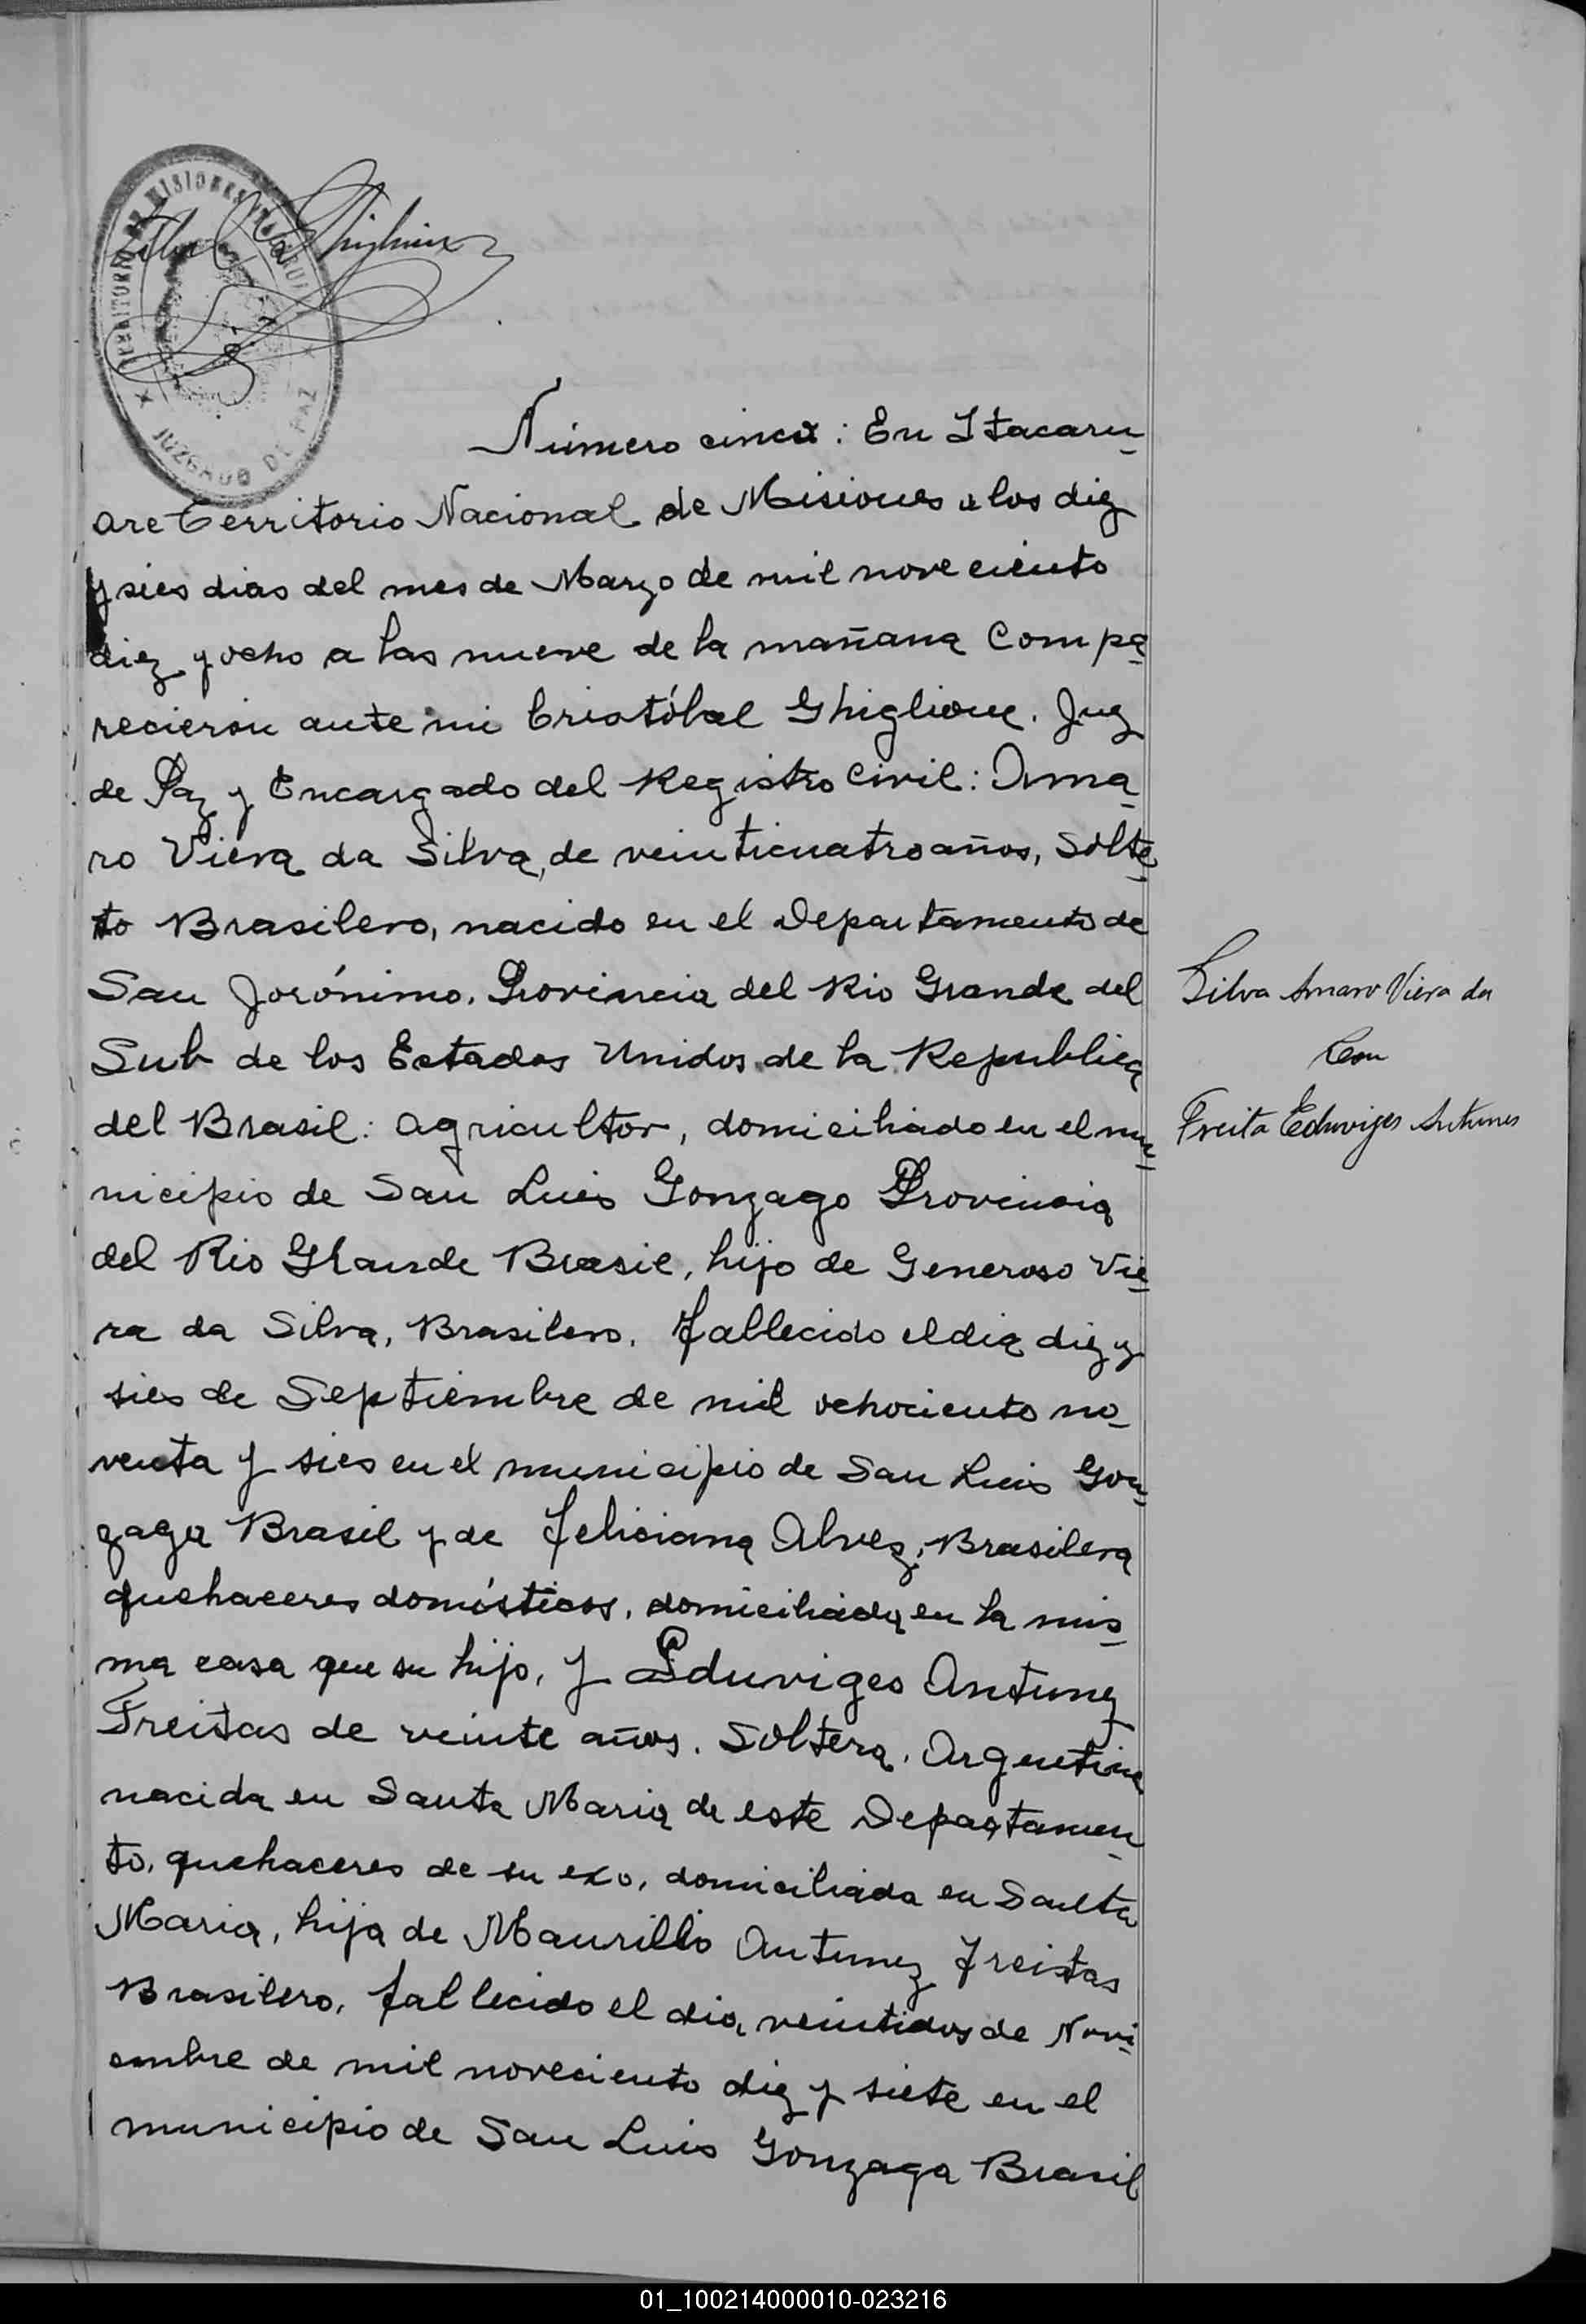 TERRITORIO DE MISIONES
JUZGADO DE PAZ
Número cinco: En Itacaru-
are Territorio Nacional de Misiones a los diez
y sies dias del mes de Marzo de mil nove ciento
diez y ocho a las nueve de la mañana Compa-
recieron ante mi Cristóbal Ghiglione. Juez
de Paz y Encargado del Registro Civil: Ama-
ro Viera da Silva, de veinticuatro años, Solte-
to Brasilero, nacido en el Departamento de
San Jorónimo. Provincia del Rio Grande del
Sub de los Estados Unidos de la Republica
del Brasil: agricultor, domiciliado en el mu-
nicipio de San Luis Gonzago Provincia
del Rio Grande Brasil, hijo de Generoso Vie-
ra da Silva, Brasilero. fallecido el dia diez y
sies de Septiembre de mil ochociento no-
venta y sies en el municipio de San Luis Gon-
zaga Brasil y de Feliciana Alvez, Brasilera
quehaceres domésticos, domiciliada en la mis-
ma casa que su hijo, y Eduviges Antunez
Freitas de veinte años. Soltera. Argentina
nacida en Santa Maria de este Departamen-
to, quehaceres de su exo, domiciliada en Santa
Maria, hija de Maurillo Antunez Freitas
Brasilero, fallecido el dia, veintidos de Novi-
embre de mil noveciento diez y siete en el
municipio de San Luis Gonzaga Brasil
Silva Amaro Viera da
Con
Freita Eduviges Antunes
01_100214000010-023216